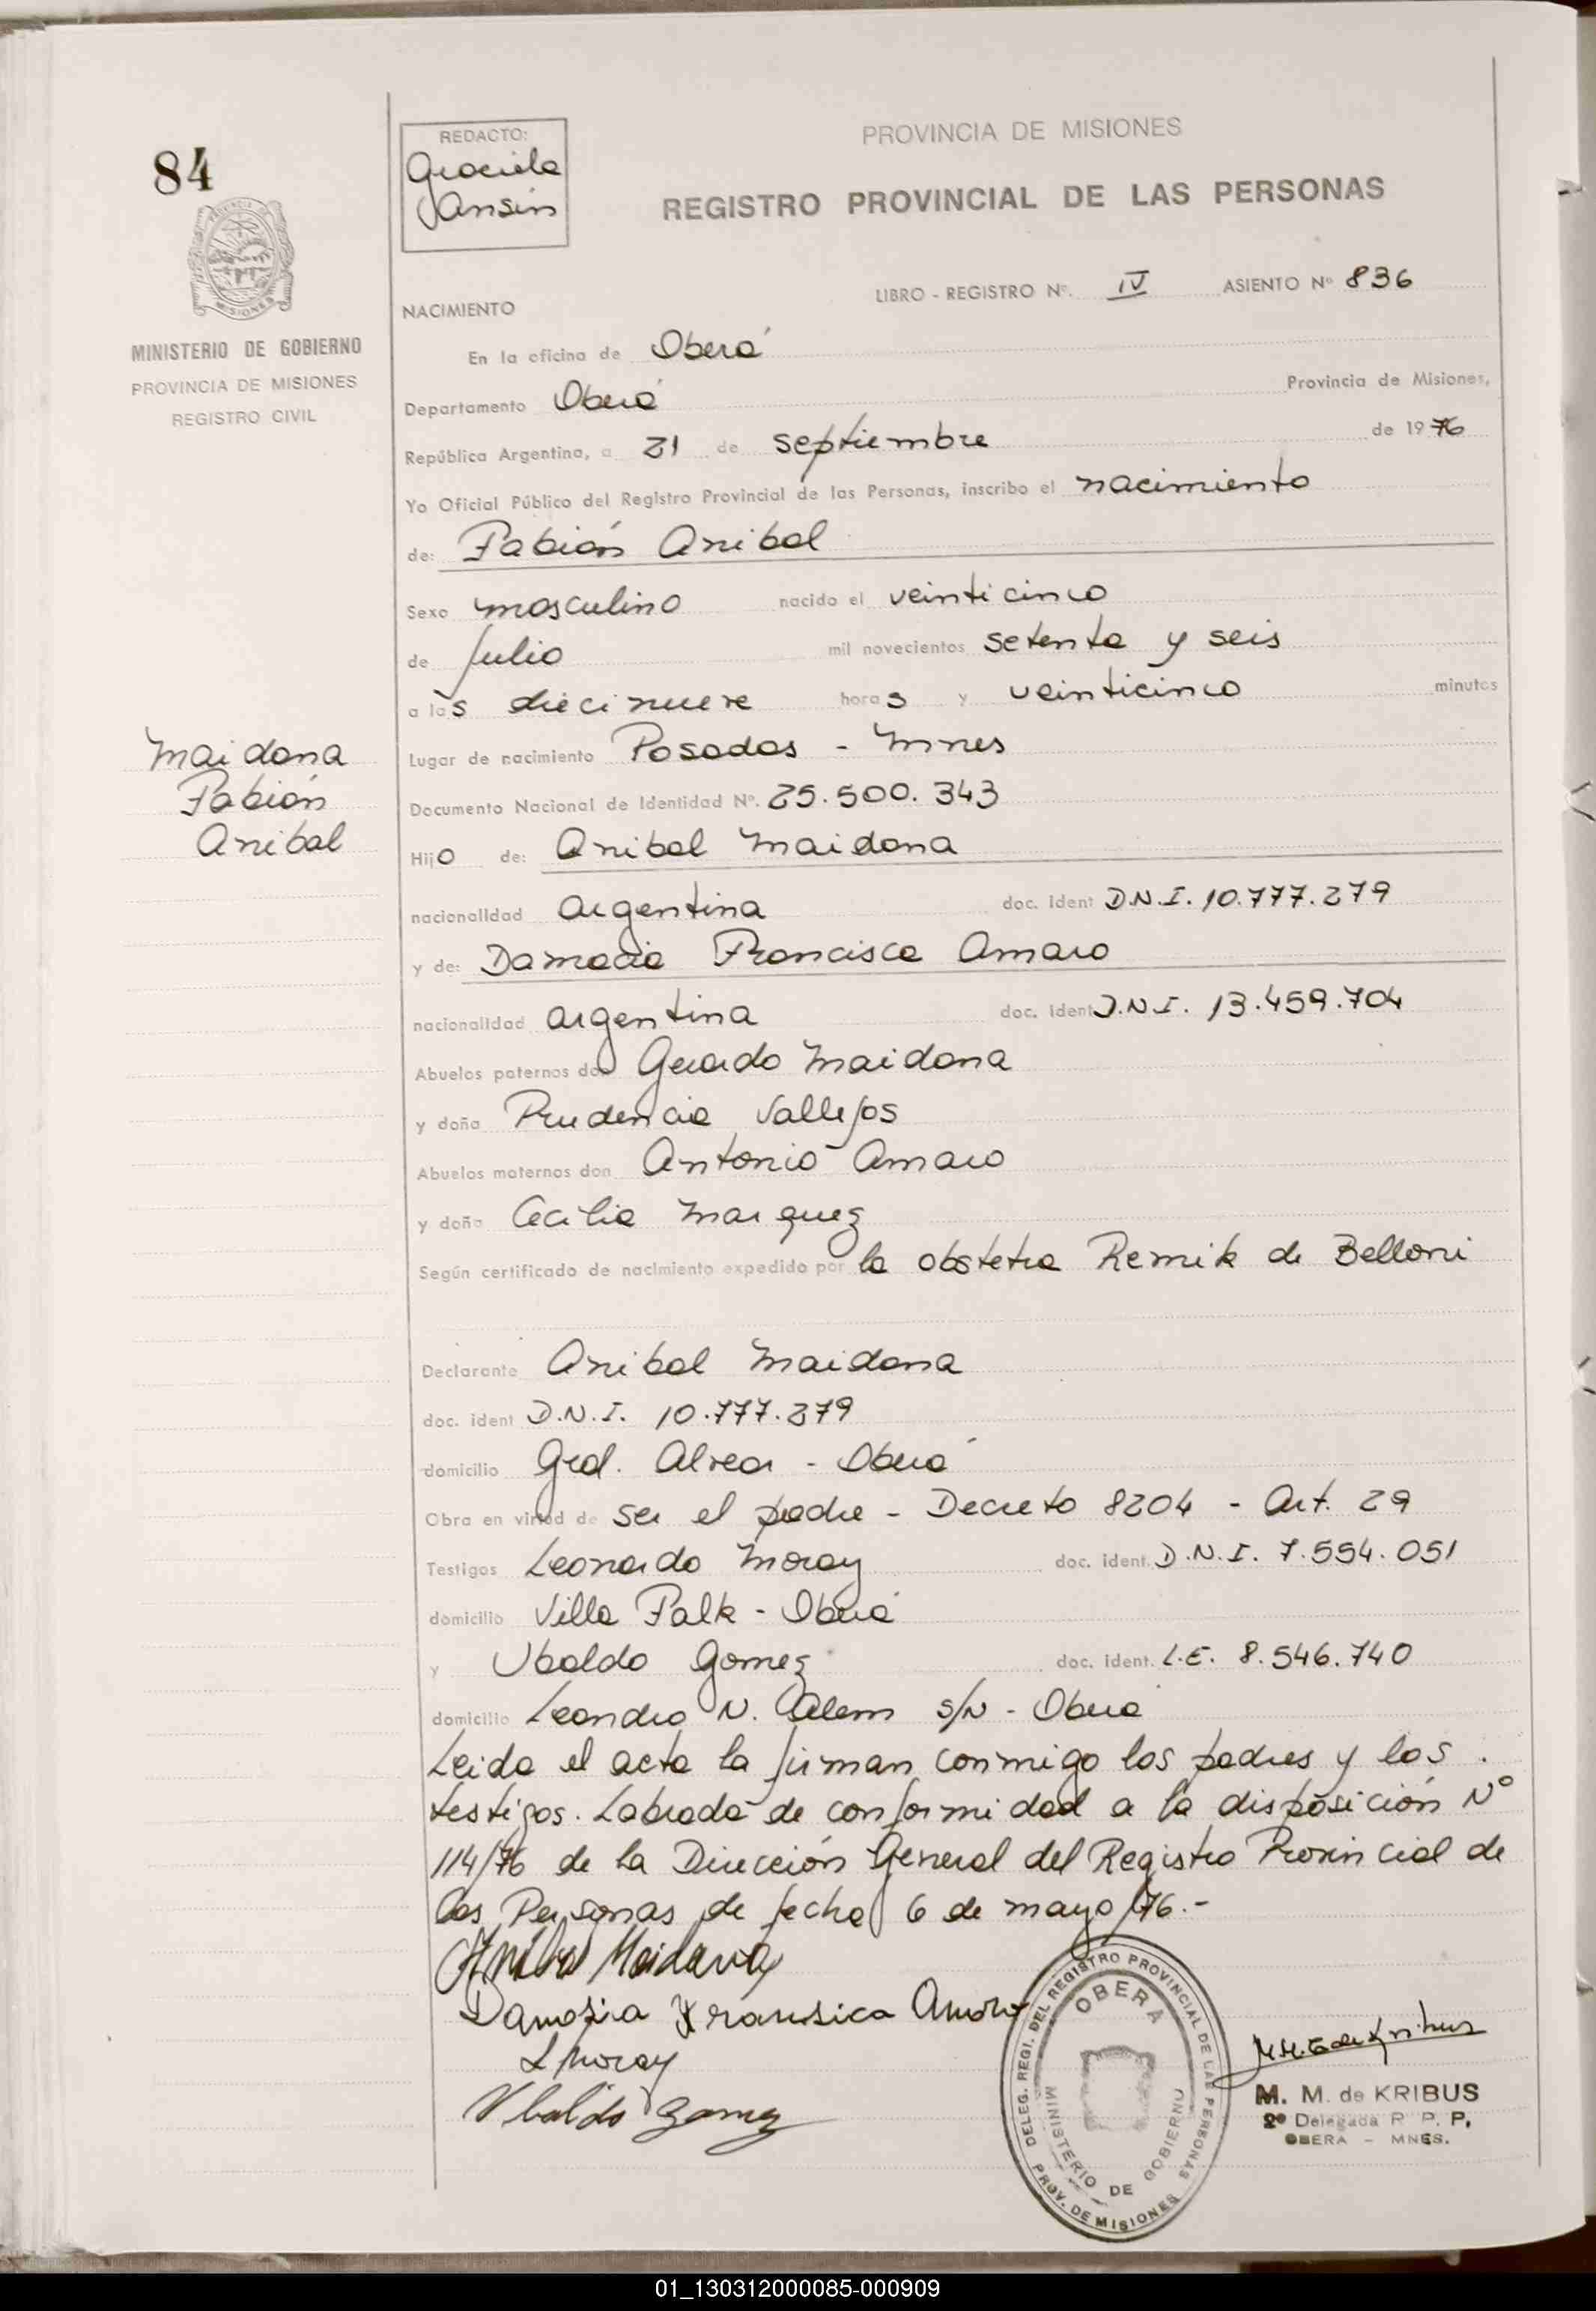 84
REDACTO:
Graciela
Jansin
PROVINCIA DE MISIONES
REGISTRO PROVINCIAL DE LAS PERSONAS
MINISTERIO DE GOBIERNO
PROVINCIA DE MISIONES
REGISTRO CIVIL
LIBRO - REGISTRO Nº. IV ASIENTO Nº 836
NACIMIENTO
En la oficina de Oberá
Departamento Oberá Provincia de Misiones,
República Argentina, a 21 de septiembre de 1976
Yo Oficial Público del Registro Provincial de las Personas, inscribo el nacimiento
de: Fabián Anibal
Sexo masculino nacido el veinticinco
de Julio mil novecientos setenta y seis
a las diecinueve horas y veinticinco minutos
Lugar de nacimiento Posadas - Mnes
Maidana
Fabián
Anibal
Documento Nacional de Identidad Nº. 25.500.343
Hijo de: Anibal Maidana
nacionalidad argentina doc. ident D.N.I. 10.777.279
y de: Damacia Francisca Amaro
nacionalidad argentina doc. ident D.N.I. 13.459.704
Abuelos paternos don Gerardo Maidana
y doña Prudencia Vallejos
Abuelos maternos don Antonio Amaro
y doña Cecilia Marquez
Según certificado de nacimiento expedido por la obstetra Remik de Belloni
Declarante Anibal Maidana
doc. ident D.N.I. 10.777.279
domicilio Gral. Alvear - Oberá
Obra en virtud de ser el padre - Decreto 8204 - Art. 29
Testigos Leonardo Moray doc. ident. D.N.I. 7.554.051
domicilio Villa Falk - Oberá
y Ubaldo Gomez doc. ident. L.E. 8.546.740
domicilio Leandro N. Alem s/N - Oberá
Leida el acta la firman conmigo los padres y los
testigos. Labrada de conformidad a la disposición Nº
114/76 de la Dirección General del Registro Provincial de
las Personas de fecha 6 de mayo/76.-
Anibal Maidana
Damasia Fransica Amaro
L Moray
Ubaldo Gomez
DELEG. REGI. DEL REGISTRO PROVINCIAL DE LAS PERSONAS
OBERA
MINISTERIO DE GOBIERNO
PROV. DE MISIONES
M. M. de KRIBUS
2º Delegada R. P. P.
OBERA - MNES.
01_130312000085-000909